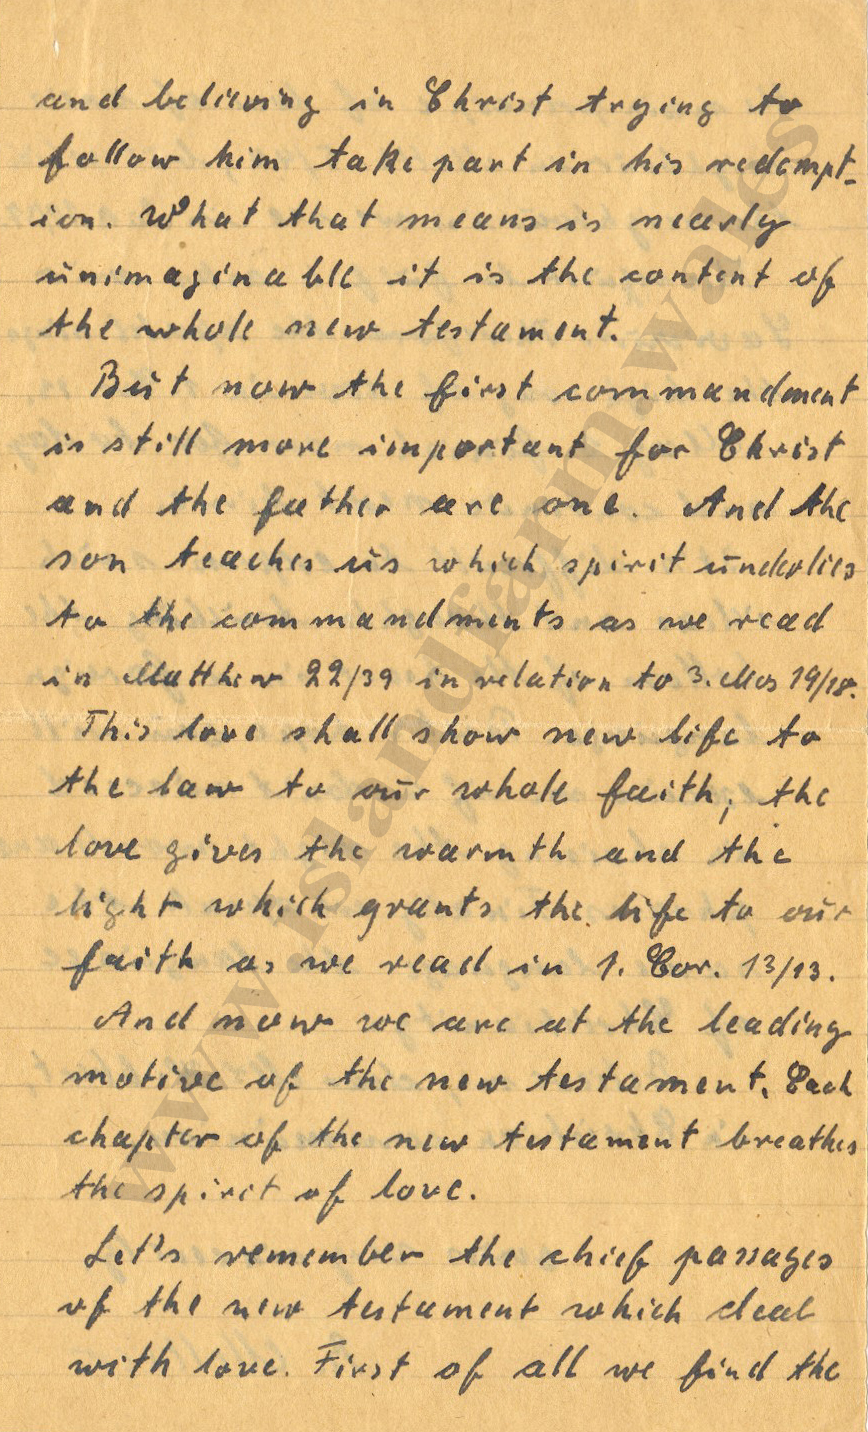 and believing in Christ trying to
follow him take part in his redempt-
ion. What that means is nearly
unimaginable it is the content of
the whole new testament.
But now the first commandment
is still more important for Christ
and the father are one. And the
son teaches us which spirit underlies
to the commandments as we read
in Matthew 22/39 in relation to 3. Mos 19/18.
This love shall show new life to
the law to our whole faith, the
love gives the warmth and the
light which grants the life to our
faith as we read in 1. Cor. 13/13.
And now we are at the leading
motive of the new testament. Each
chapter of the new testament breathes
the spirit of love.
Let's remember the chief passages
of the new testament which deal
with love. First of all we find the
www.islandfarm.wales